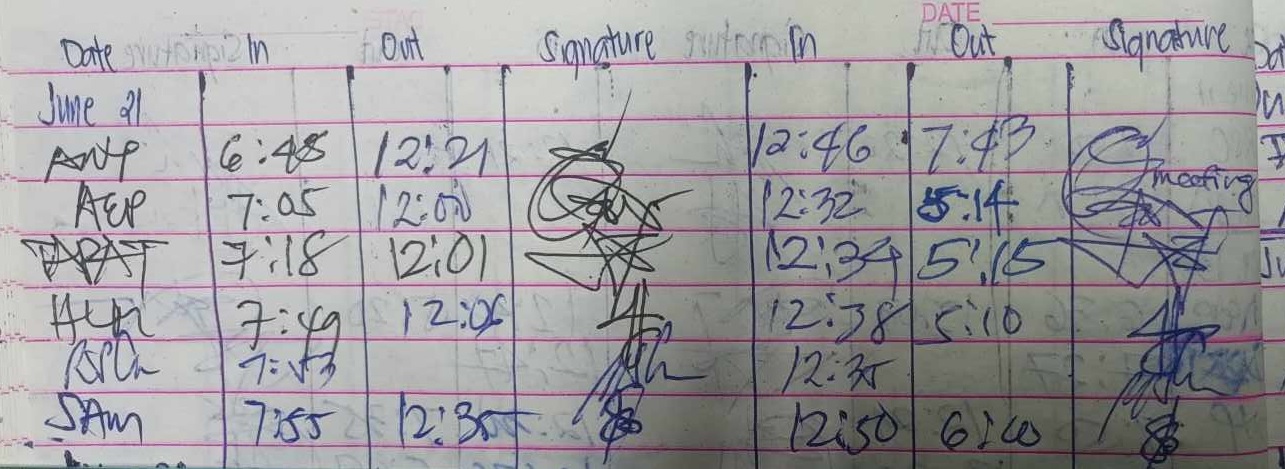 DATE
Date In Out Signature In Out Signature
June 21
ANP 6:48 12:21 12:46 7:43
AEP 7:05 12:00 12:32 5:14 meeting
TAPAT 7:18 12:01 12:34 5:15
7:49 12:06 12:38 5:10
7:53 12:35
SAM 7:55 12:35 12:50 6:00